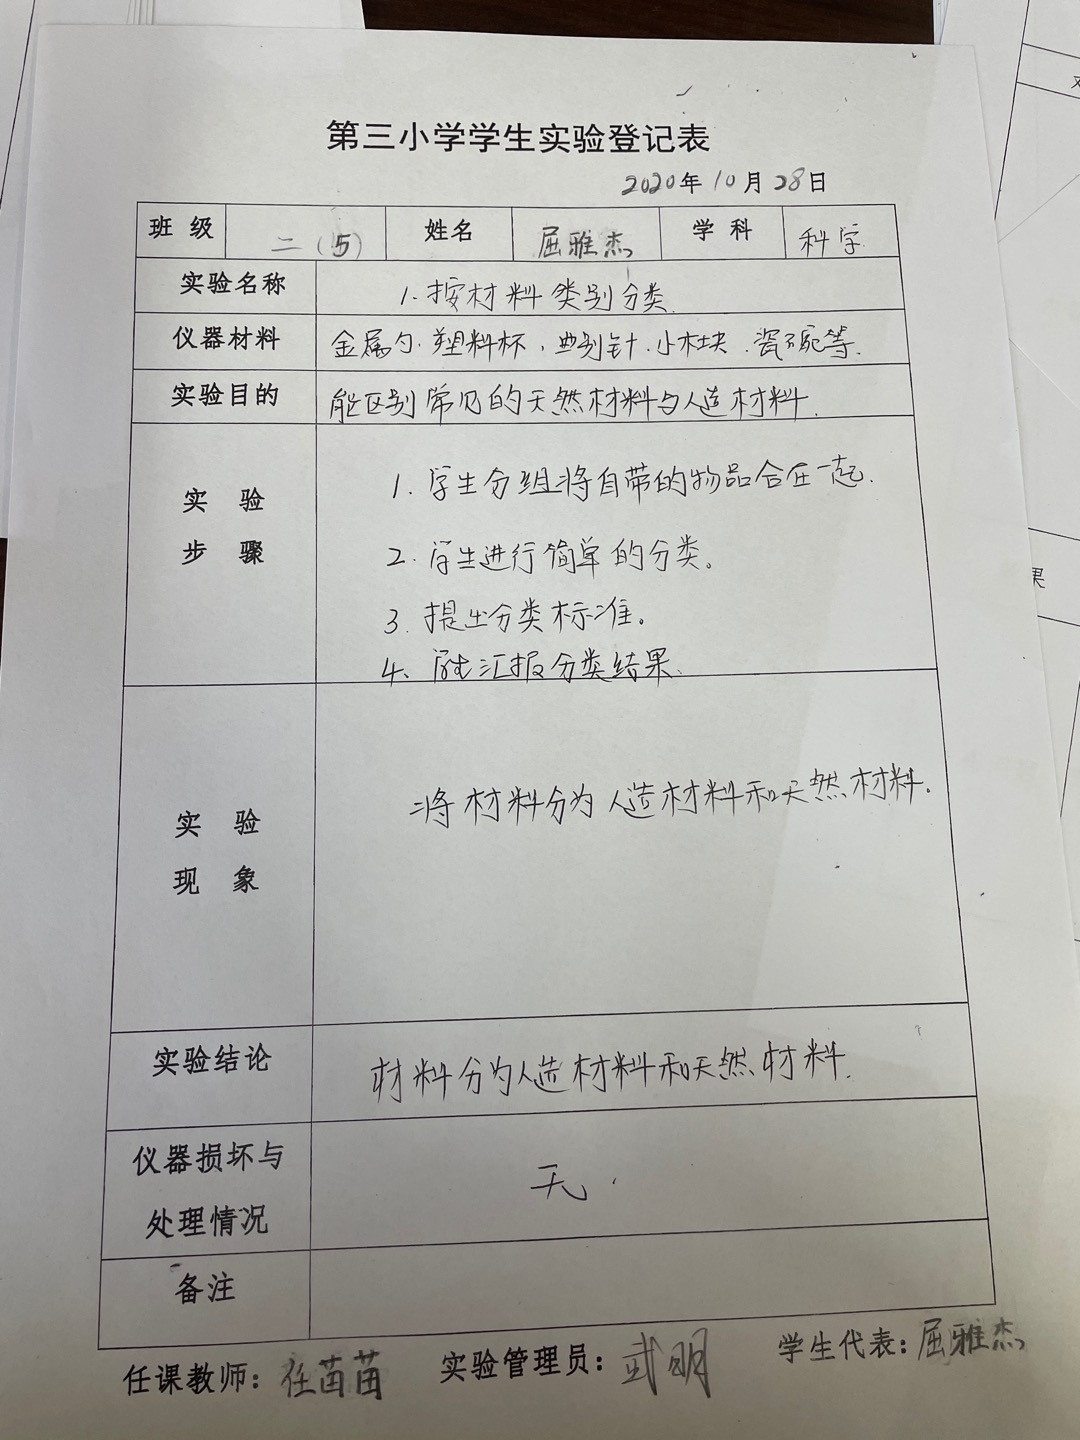 第三小学学生实验登记表
2020年10月28日
班级 二（5） 姓名 屈雅杰 学科 科学
实验名称 1.按材料类别分类.
仪器材料 金属勺.塑料杯、曲别针.小木块.瓷碗等.
实验目的 能区别常见的天然材料与人造材料.
实验
步骤
1.学生分组将自带的物品合在一起.
2.学生进行简单的分类。
3.提出分类标准。
4、学生汇报分类结果.
实验
现象
将材料分为人造材料和天然材料.
实验结论 材料分为人造材料和天然材料.
仪器损坏与
处理情况
无.
备注
任课教师：任苗苗 实验管理员：武明 学生代表：屈雅杰
果